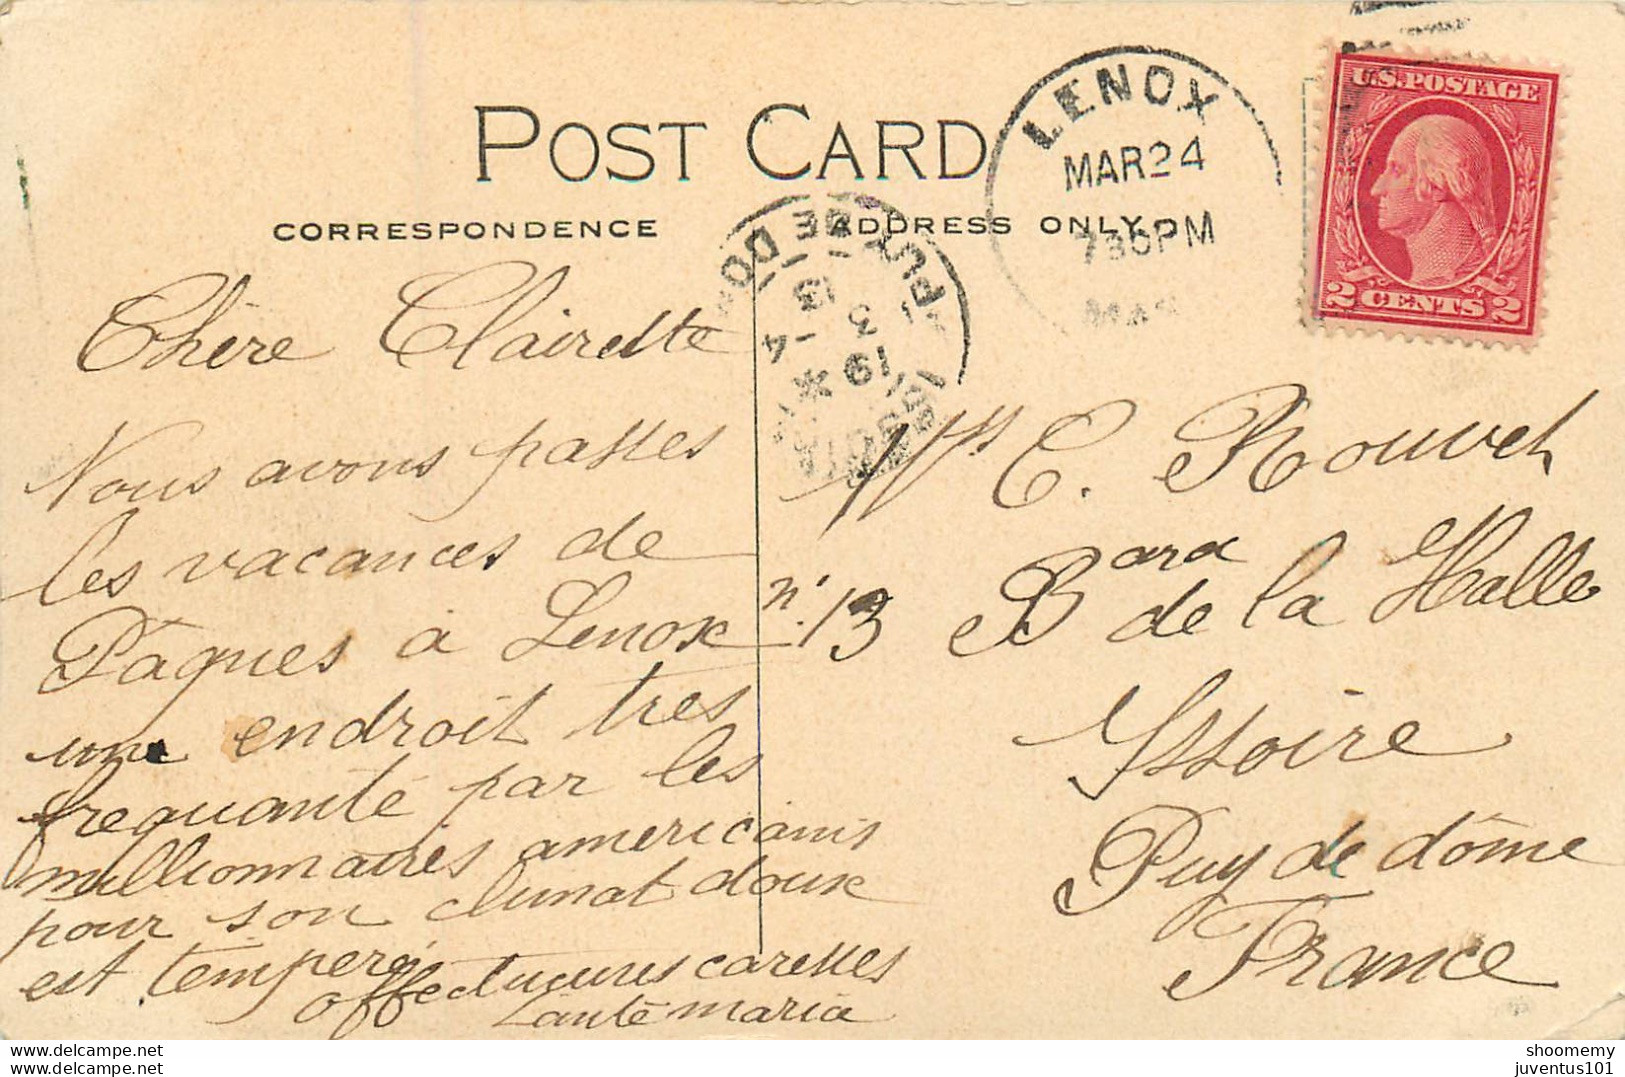 POST CARD
CORRESPONDENCE
ADDRESS ONLY
LENOX
MAR 24
730PM
MASS
U.S. POSTAGE
2 CENTS 2
PUY DE DOME
13
3 - 4
19
Chère Clairette
Nous avons passes
les vacances de
Pâques à Lenox
une endroit tres
frequanté par les
millionnaires americains
pour son climat doux
est temperé
affectueuses caresses
tante maria
C. Rouvet
n° 13 Bard de la Halle
Yssoire
Puy de dôme
France
delcampe.net
delcampe.net
shoomemy
juventus101